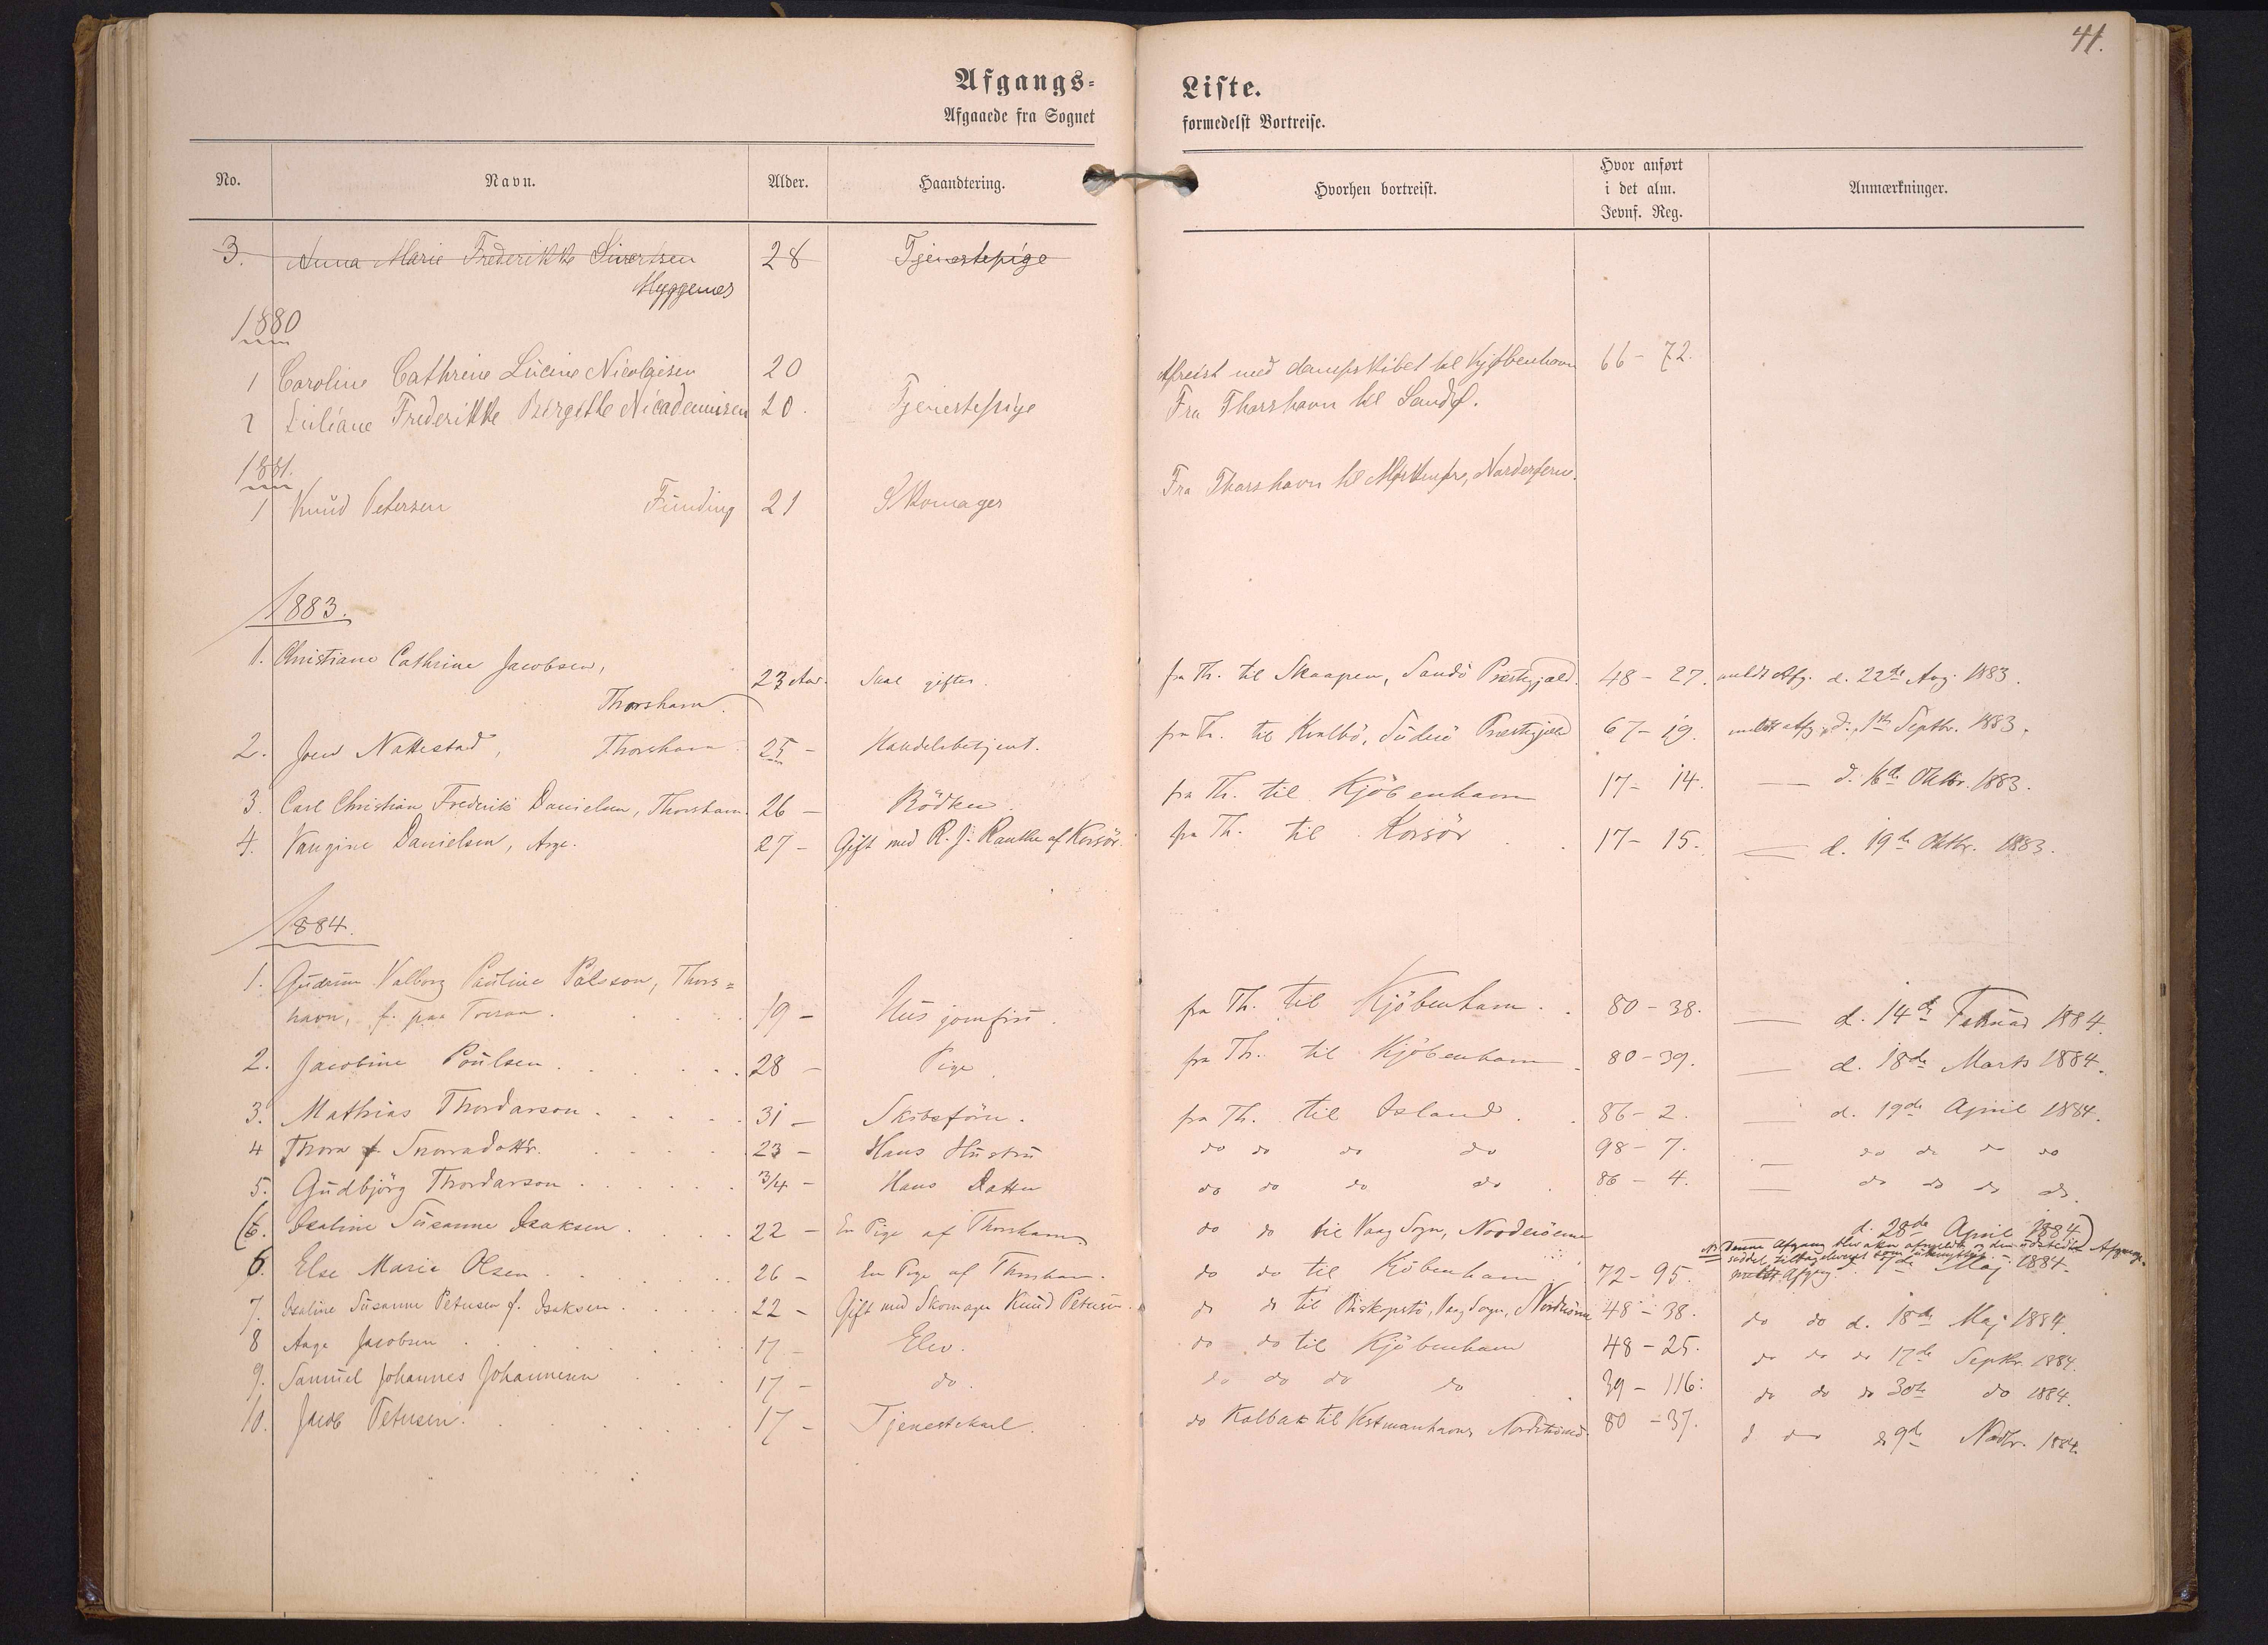 41.
Afgangs= Liste.
Afgaaede fra Sognet formedelst Bortreise.
No. Navn. Alder. Haandtering. Hvorhen bortreist. Hvor anført i det alm. Jevnf. Reg. Anmærkninger.
3. Anna Marie Frederikke Sivertsen 28 Tjenestepige
Myggenes
1880
1 Caroline Cathrine Lucine Nicolajsen 20 Afreist med dampskibet til Kjøbenhavn 66 - 72.
2 Juliane Frederikke Birgitte Nicademusen 20. Tjenestepige Fra Thorshavn til Sandø.
1881.
1 Knud Petersen Funding 21 Skomager Fra Thorshavn til Norderøerne.
1883.
1. Christiane Cathrine Jacobsen,
Thorshavn. 23 Aar. Skal giftes. fra Th. til Skaapen, Sandö Præstegjæld. 48 - 27. meldt Afg. d. 22de Aug. 1883.
2. Joen Nattestad, Thorshavn 25 - Handelsbetjent. fra Th. til Kvalbö, Suderö Præstegjæld 67 - 19. meldt Afg. d. 1ste Septbr. 1883.
3. Carl Christian Frederik Danielsen, Thorshavn. 26 - Bödker. fra Th. til Kjöbenhavn 17 - 14. — d. 16de Oktbr. 1883.
4. Vaugine Danielsen, Arge. 27 - Gift med R. J. Rantke af Korsör. fra Th. til Korsör 17 - 15. — d. 19de Oktbr. 1883.
1884.
1. Gudrun Valborg Pauline Pálsson, Thors=
havn, f. paa Tveraa. 19 - Husjomfru. fra Th. til Kjöbenhavn. 80 - 38. — d. 14de Februar 1884.
2. Jacobine Poulsen 28 - Pige fra Th. til Kjöbenhavn 80 - 39. — d. 18de Marts 1884.
3. Mathias Thordarson 31 - Skibsförer. fra Th. til Island. 86 - 2. — d. 19de April 1884.
4 Thora f. Snorradottr. 23 - Hans Hustru do do do do 98 - 7. — do do do do
5. Gudbjörg Thordarson 3/4 - Hans Datter do do do do 86 - 4. — do do do do.
(6. Isaline Susanne Isaksen. 22 - En Pige af Thorshavn do do til Vaag Sogn, Norderöerne d. 28de April 1884)
NB Denne Afgang blev aldrig afmeldt og den udstedte Afgangs-
seddel tilbageleveret som
6. Else Marie Olsen 26 - En Pige af Thorshavn. do do til Kjöbenhavn 72 - 95. meldt Afgang d. 7de Maj 1884.
7. Isaline Susanne Petersen f. Isaksen 22 - Gift med Skomager Knud Petersen. do do til Biskopstö, Vaag Sogn, Norderöerne 48 - 38. do do d. 18de Maj 1884.
8 Aage Jacobsen 17 - Elev. do do til Kjöbenhavn 48 - 25. do do do 17de Septbr. 1884.
9. Samuel Johannes Johannesen 17 - do. do do do do 39 - 116. do do do 30te do 1884.
10. Jacob Petersen. 17 - Tjenestekarl. do Kalbak til Vestmanhavn, Nordströmö 80 - 37. d do do 9de Novbr. 1884.